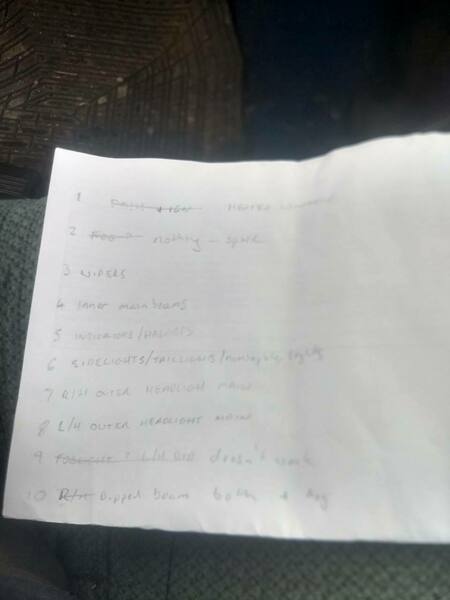 1 HEATED
2 nothing - spare
3 WIPERS
4 Inner mainbeams
5 INDICATORS/HAZARDS
6 SIDELIGHTS/TAILLIGHTS/numberplate lights
7 R/H OUTER HEADLIGHT MAIN
8 L/H OUTER HEADLIGHT MAIN
9 L/H DIP doesn't work
10 R/H Dipped beam both